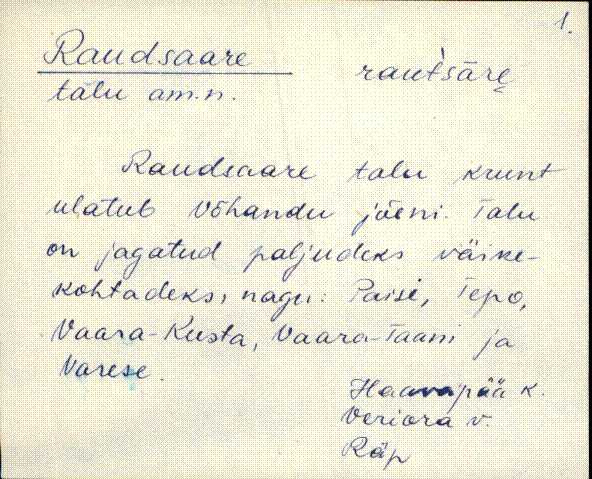 1.
Raudsaare rautsāre̬
talu am.n.
Raudsaare talu krunt
ulatub Võhandu jõeni. Talu
on jagatud paljudeks väike-
kohtadeks, nagu: Paisi, Tepo,
Vaara-Kusta, Vaara-Taani ja
Varese.
Haavapää k.
Veriora v.
Räp